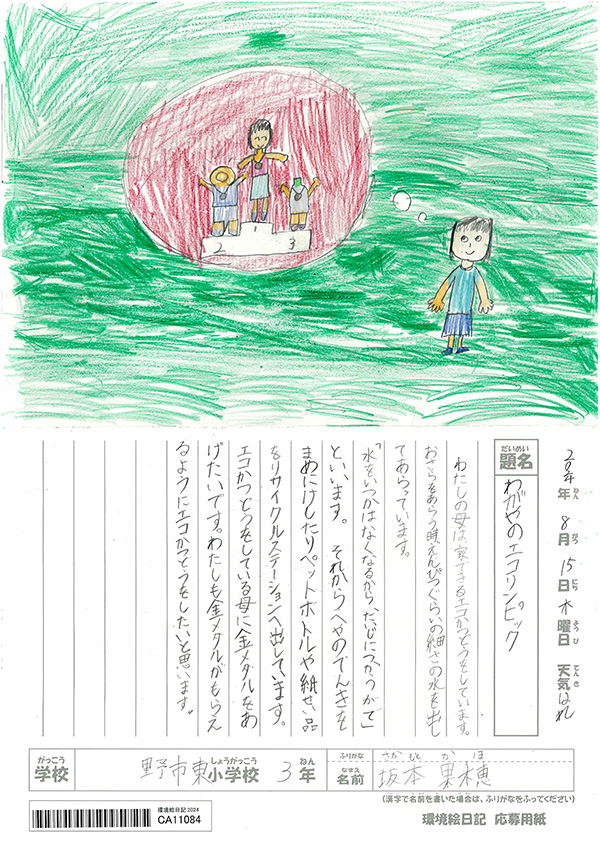 1
2
3
2024年 8月 15日 木曜日 天気 はれ
ねん がつ にち ようび てんき
だいめい
題名
わがやのエコリンピック
わたしの母は、家でできるエコかつどうをしています。
おさらをあらう時えんぴつぐらいの細さの水を出し
てあらっています。
「水をいつかはなくなるから、だいじにつかうかで」
といいます。それからへやのでんきを
まめにけしたりペットボトルや紙せい品
をリサイクルステーションへ出しています。
エコかつどうをしている母に金メダルをあ
げたいです。わたしも金メダルがもらえ
るようにエコかつどうをしたいと思います。
がっこう しょうがっこう ねん
学校 野市東小学校 3年
ふりがな さかもと かほ
なまえ
名前 坂本 果穂
(漢字で名前を書いた場合は、ふりがなをふってください)
環境絵日記 2024
CA11084
環境絵日記 応募用紙